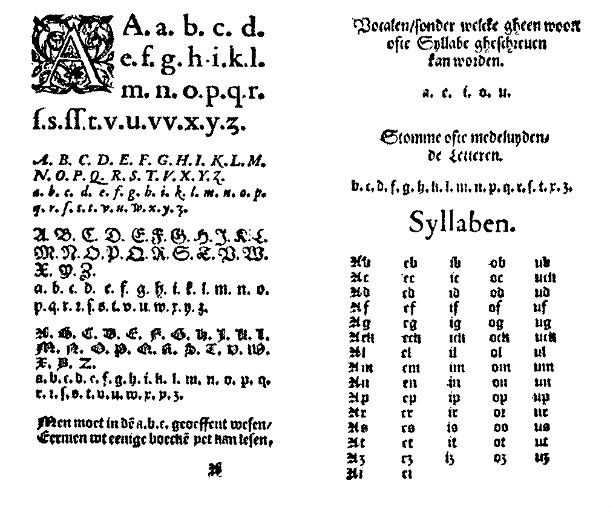 A A. a. b. c. d.
e. f. g. h. i. k. l.
m. n. o. p. q. r.
ſ. s. ſſ. t. v. u. vv. x. y. z.
A. B. C. D. E. F. G. H. I. K. L. M.
N. O. P. Q. R. S. T. V. X. Y. Z.
a. b. c. d. e. f. g. h. i. k. l. m. n. o. p.
q. r. ſ. s. t. v. u. w. x. y. z.
A. B. C. D. E. F. G. H. J. K. L.
M. N. O. P. Q. R. S. T. V. W.
X. Y. Z.
a. b. c. d. e. f. g. h. i. k. l. m. n. o.
p. q. r. ꝛ. ſ. s. t. v. u. w. x. y. z.
A. B. C. D. E. F. G. H. I. K. L.
M. N. O. P. Q. R. S. T. V. W.
X. Y. Z.
a. b. c. d. e. f. g. h. i. k. l. m. n. o. p. q.
r. ꝛ. ſ. s. t. v. u. w. x. y. z.
Men moet in dē a.b.c. geoeffent weſen/
Eermen wt eenige boeckē yet kan leſen,
Vocalen/ſonder welcke gheen woort
ofte Syllabe gheſchreuen
kan worden.
a. e. i. o. u.
Stomme ofte medeluyden/
de Letteren.
b. c. d. f. g. h. k. l. m. n. p. q. r. ſ. t. x. z.
Syllaben.
Ab eb ib ob ub
Ac ec ic oc uck
Ad ed id od ud
Af ef if of uf
Ag eg ig og ug
Ack eck ick ock uck
Al el il ol ul
Am em im om um
An en in on un
Ap ep ip op up
Ar er ir or ur
As es is os us
At et it ot ut
Az ez iz oz uz
Ai ei